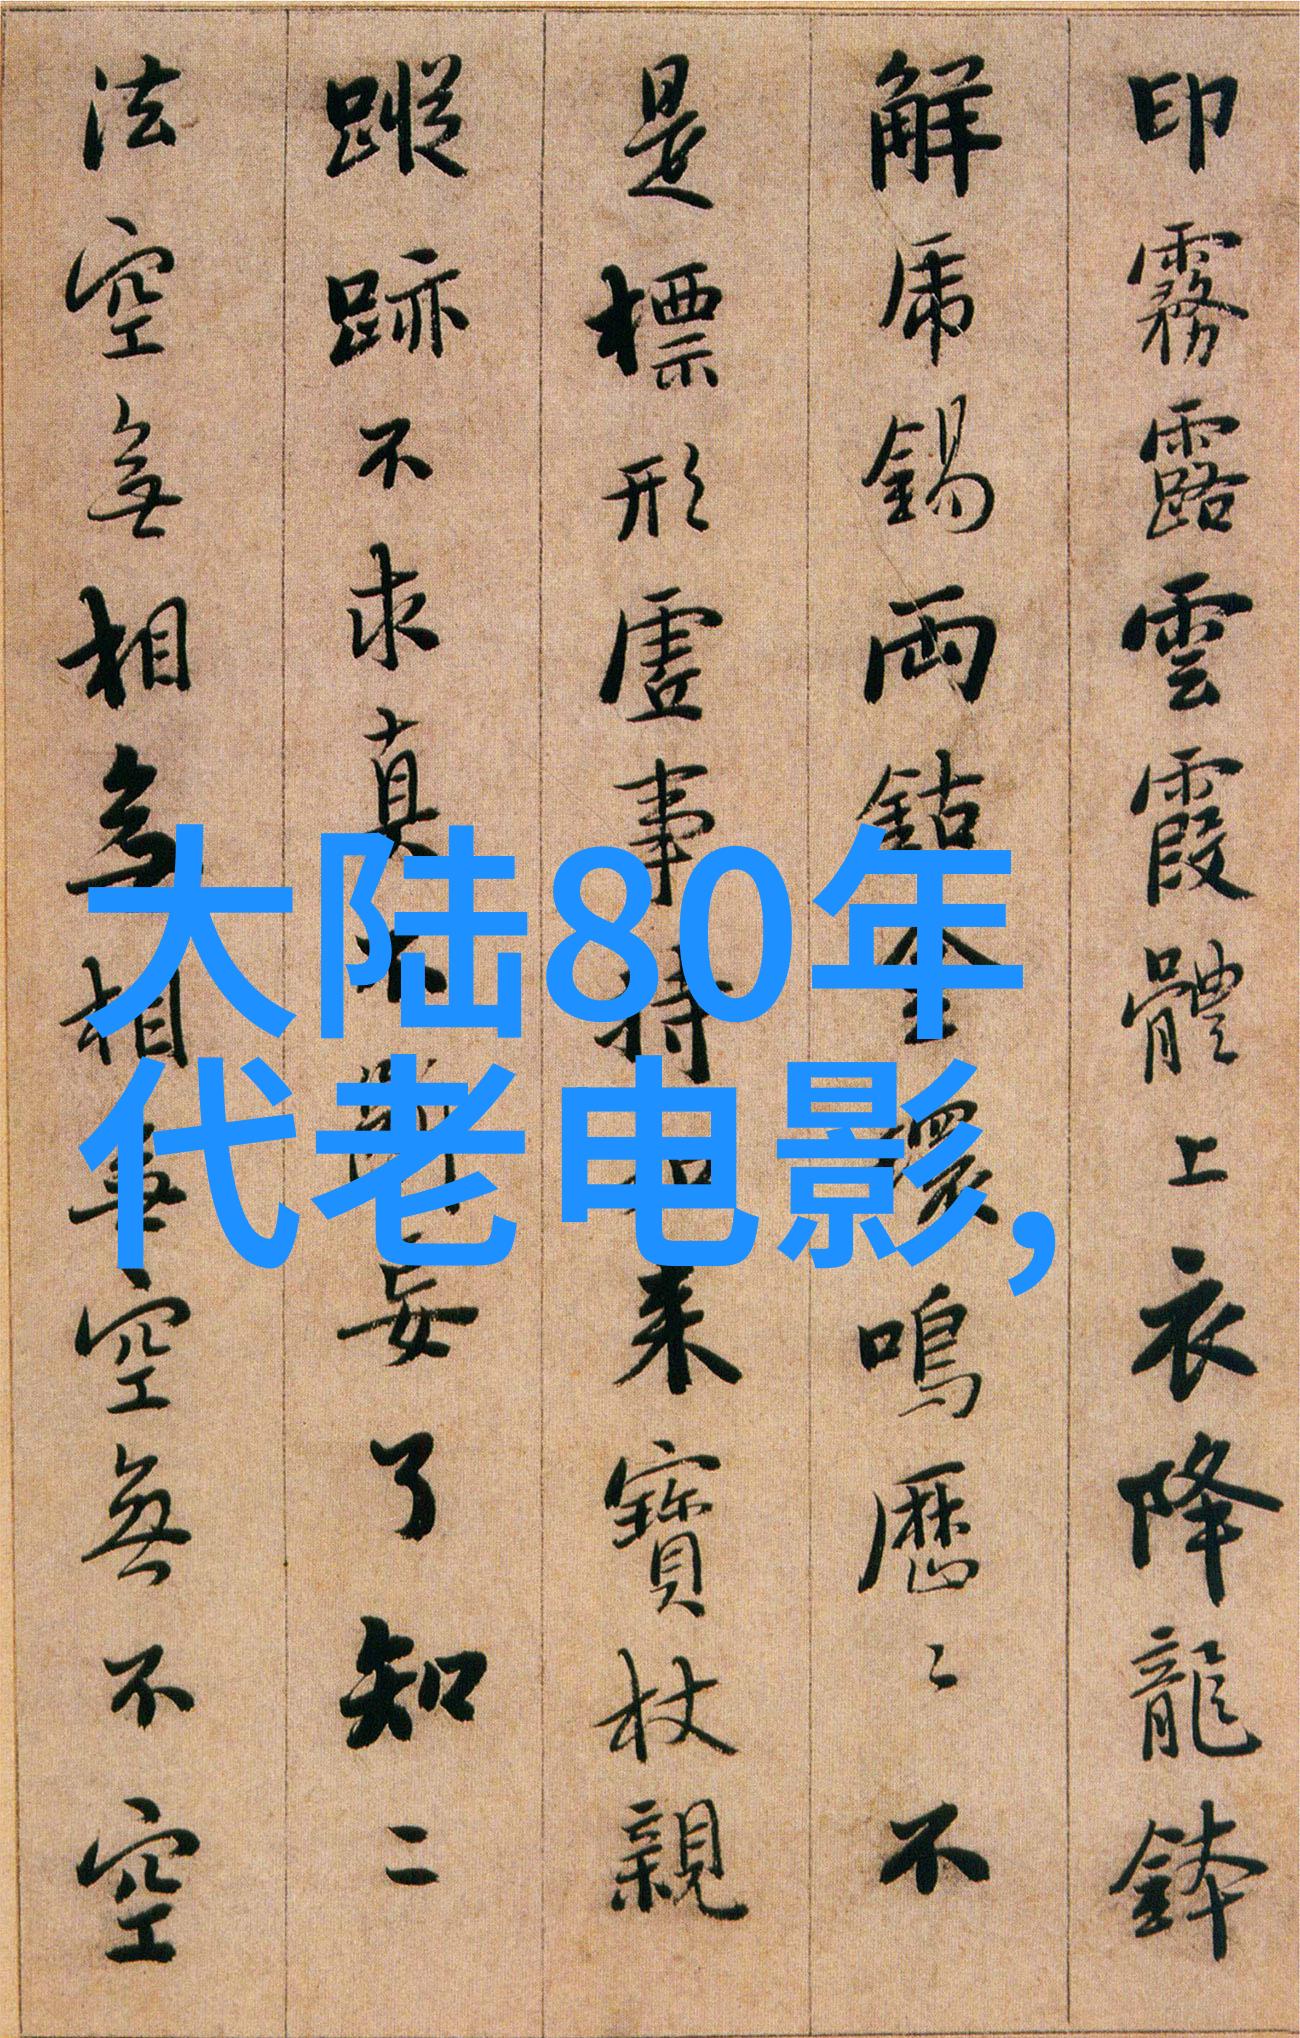 印霧露雲霞體上衣降龍鉢
解虎錫兩鈷金環鳴歷〻不
是標形虛事持如來寶杖親
蹤跡不求真不斷妄了知二
法空無相無相無空無不空
大陆80年
代老电影,